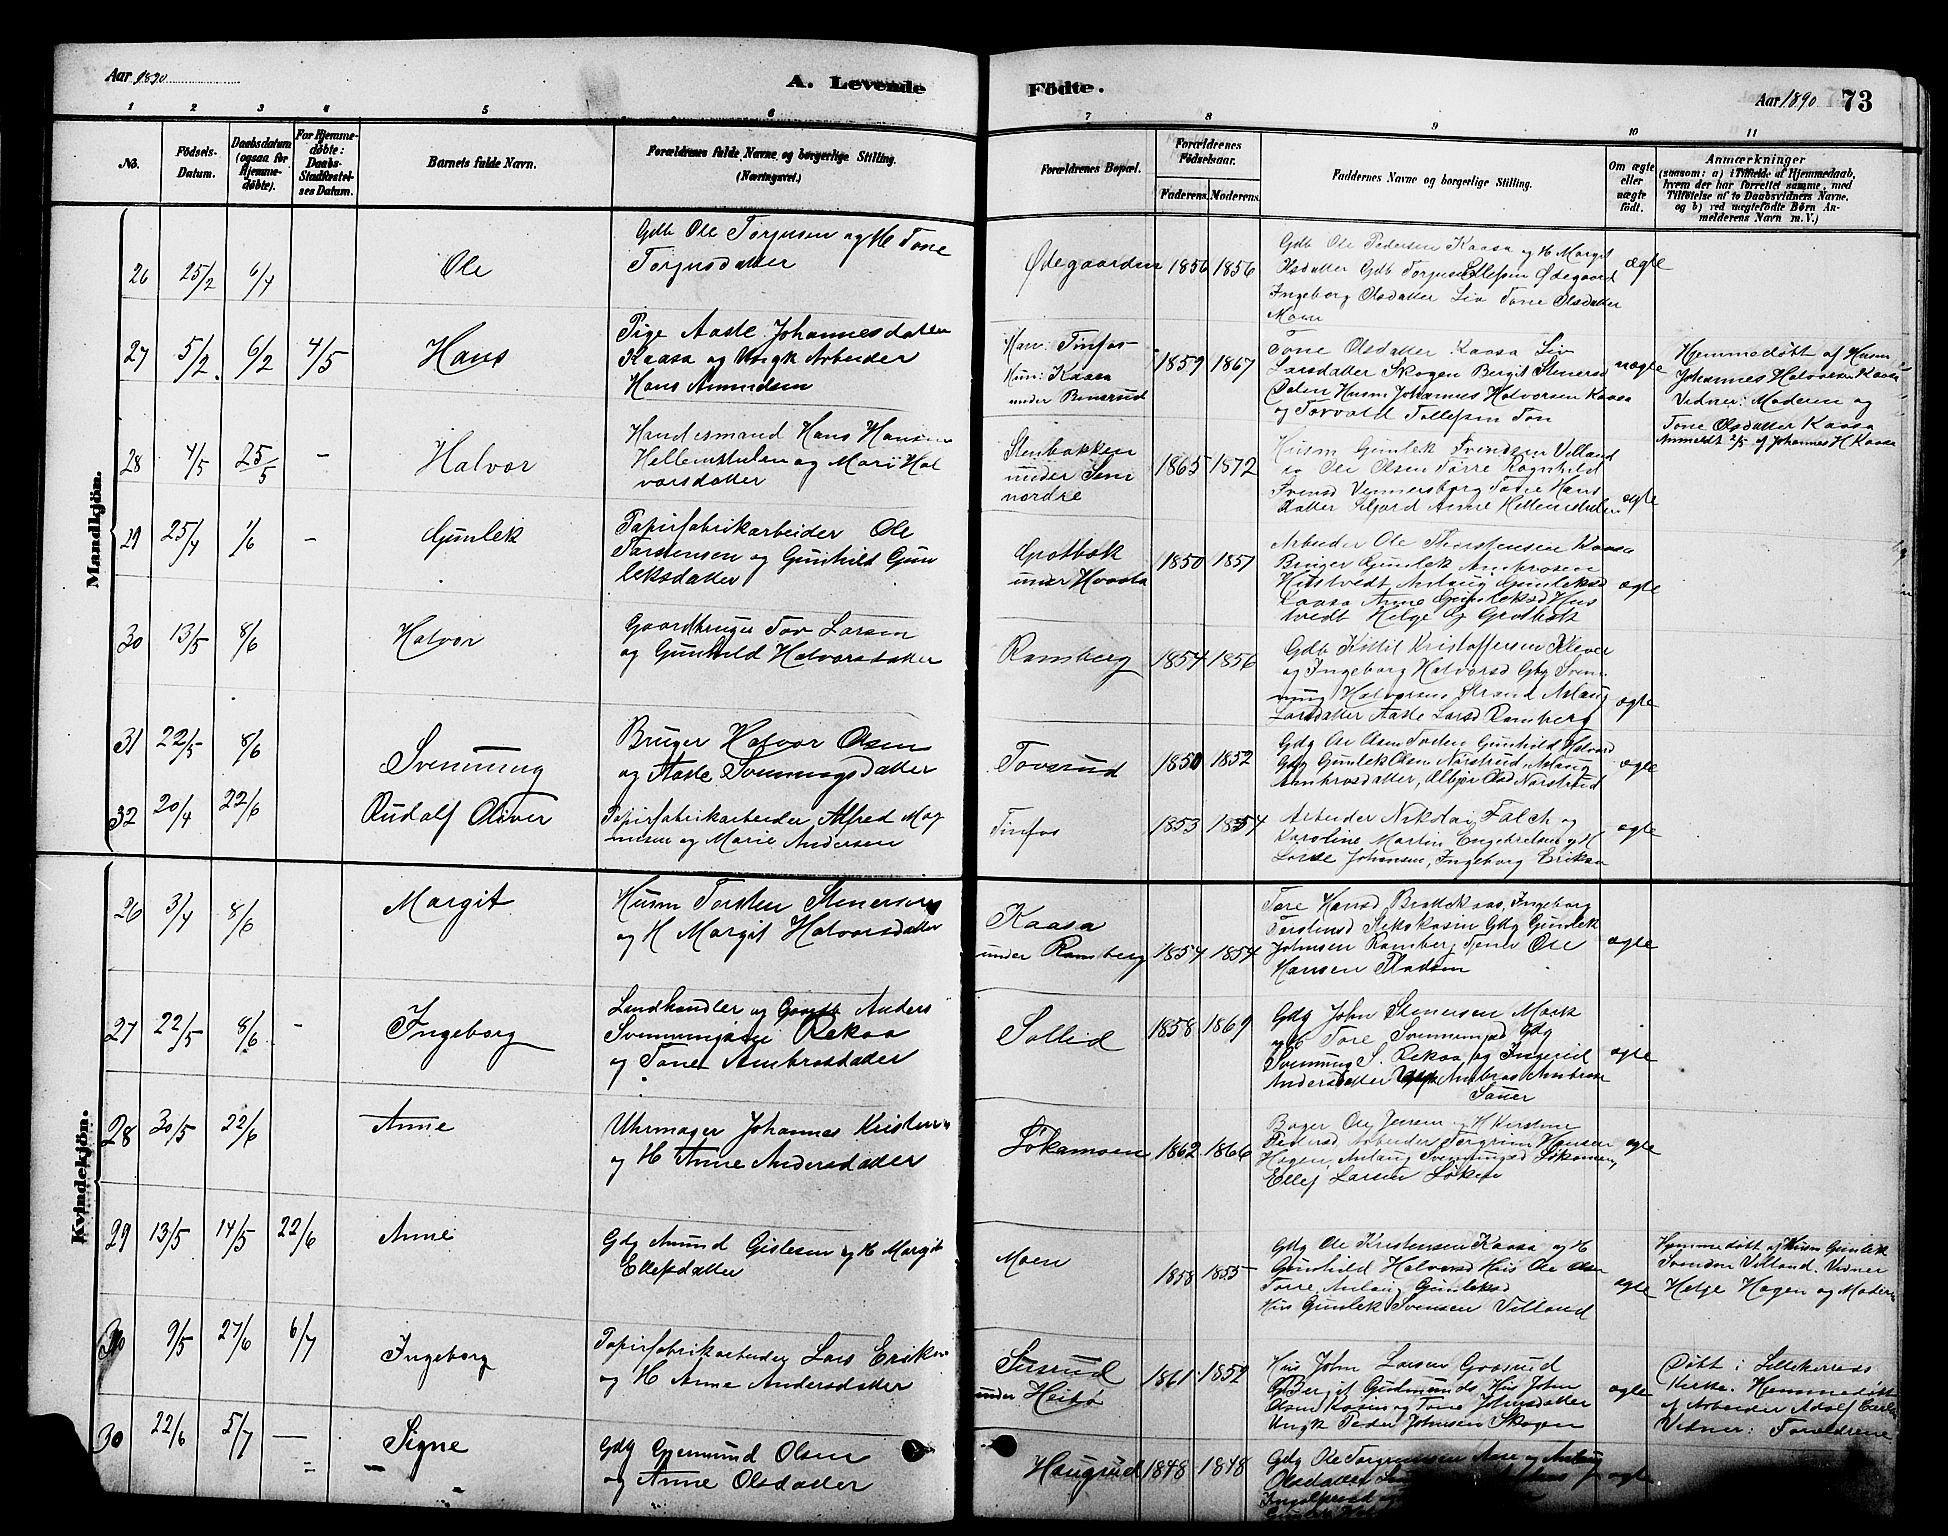 Aar 1890
A. Levende
Fødte.
Aar 1890
73
1 2 3 4 5 6 7 8 9 10 11
No.
Fødsels-
Datum.
Daabsdatum
(ogsaa for
Hjemme-
døbte).
For Hjemme-
døbte:
Daabs-
Stadfæstel-
ses Datum.
Barnets fulde Navn.
Forældrenes fulde Navne og borgerlige Stilling.
(Næringsvei.)
Forældrenes Bopæl.
Forældrenes
Fødselsaar.
Faderens. Moderens.
Faddernes Navne og borgerlige Stilling.
Om ægte
eller
uægte
født.
Anmærkninger
(saasom: a) i Tilfælde af Hjemmedaab,
hvem der har forrettet samme, med
Tilføielse af to Daabsvidners Navne.
og b) ved uægtefødte Børn An-
melderens Navn m. V.)
Mandkjøn.
26 25/2 6/4 Ole
Gdb Ole Torjusen og H Tone
Torjusdatter
Ødegaarden 1856 1856
Gdb Ole Pedersen Kaasa og H Margit
Olsdatter Gdb Torjus Ellefsen Ødegaard
Ingeborg Olsdatter Liv Tone Olsdatter
Moen
ægte
27 5/2 6/2 4/5 Hans
Pige Aaste Johannesdatter
Kaasa og Ungk Arbeider
Hans Amundsen
Han: Tinfos
Hun: Kaasa
under Bensrud
1859 1867
Tone Olsdatter Kaasa Liv
Larsdatter Skogen Bergit Stenersd
Dalen Husm Johannes Halvorsen Kaasa
og Torvald Tollefsen Ton
uægte
Hjemmedøbt af Husm
Johannes Halvorsen Kaasa
Vidner: Moderen og
Tone Olsdatter Kaasa
Anmeldt 2/5 af Johannes H Kaasa
28 4/5 25/5 - Halvor
Handesmand Hans Hansen
Hellemstulen og Mari Hal
vorsdatter
Stenbakken
under Sem
nordre
1865 1872
Husm Gunlek Svendsen Villand
Ole Olsen Tørre Ragnhild
Svensd Vennersborg Tone Hans
datter Seljord Anne Hellemstulen
ægte
29 25/4 1/6 - Gunlek
Papirfabrikarbeider Ole
Torstensen og Gunhild Gun
leksdatter
Grotbæk
under Haasta
1850 1857
Arbeider Ole Thorstensen Kaasa
Bruger Gunlek Ambrosen
Hustvedt Aslaug Gunleksd
Kaasa Anne Gunleksd Hus
tvedt Helge G Grotbæk
ægte
30 13/5 8/6 Halvor
Gaardbruger Tov Larsen
og Gunhild Halvorsdatter
Ramberg 1854 1856
Gdb Kittil Kristoffersen Klever
og Ingeborg Halvorsd Gbg Sven
nung Halvorsen Strand Aslaug
Larsdatter Aaste Larsd Ramberg
ægte
31 22/5 8/6 Svennung
Bruger Halvor Olsen
og Aaste Svennungsdatter
Tovsrud 1850 1852
Gdg Ole Olsen Gunhild Halvord
Gdg Gunlek Olsen Norstrud Aslaug
Ambrosdatter, Olsd Norstrud
ægte
32 20/4 22/6 Rudolf Oliver
Papirfabrikarbeider Alfred Mag
nusen og Marie Andersen
Tinfos 1853 1854
Arbeider Nikolai Falch og
Karoline Martin Engebretsen og H
Lovise Johansen, Ingeborg Eriksen
ægte
Kvindekjøn.
26 3/4 8/6 Margit
Husm Torsten Stenersen
og H Margit Halvorsdatter
Kaasa
under Ramberg
1854 1854
Tore Hansd Brattekaas, Ingeborg
Torstensd Gdg Gunlek
Johnsen Ramberg, Ole
Hansen Fladsen
ægte
27 22/5 8/6 - Ingeborg
Landhandler og Gaardb Anders
Svennungsen Rekaa
og Tone Ambrosdatter
Sollid 1858 1869
Gdg John Stenersen Mark
og H Tore Svennungsd Gdg
Svennung S. Rekaa og Ingerid
Andersdatter Ambros Ambros
Sauer
ægte
28 30/5 22/6 Anne
Uhrmager Johannes Kristensen
og H Anne Andersdatter
Løkamoen 1862 1866
Bager Ole Jensen og H Kirstine
Pedersd Arbeider Torgrim Hansen
Hagen, Aslaug Svennungsd Løkamoen,
Ellef Larsen Løken
ægte
29 13/5 14/5 22/6 Anne
Gdg Amund Gislesen og H Margit
Ellefsdatter
Moen 1858 1855
Gdg Ole Kristensen Kaasa og H
Gunhild Halvorsd Hus Ole Olsen
Tørre Aslaug Gunleksd
Hus Gunlek Svensen Villand
ægte
Hjemmedøbt af Husm Gunlek
Svendsen Villand. Vidner
Helje Hagen og Moderen
30 9/5 27/6 6/7 Ingeborg
Papirfabrikarbeider Lars Eriksen
og H Anne Andersdatter
Sisrud
under Heibø
1861 1852
Hus John Larsen Graasrud
Bergit Gudmunds Hus John
Olsen Kaasa og Tone Johnsdatter
Ungk Peder Johnsen Skogen
ægte
Døbt i Lilleherreds
Kirke. Hjemmedøbt
af Arbeider Adolf Carlsen
Vidner: Forældrene
30 22/6 5/7 - Signe
Gdg Gjermund Olsen
og Anne Olsdatter
Haugrud 1848 1848
Gdg Ole Torgrimsen Aase og Aslaug
Olsdatter
ægte